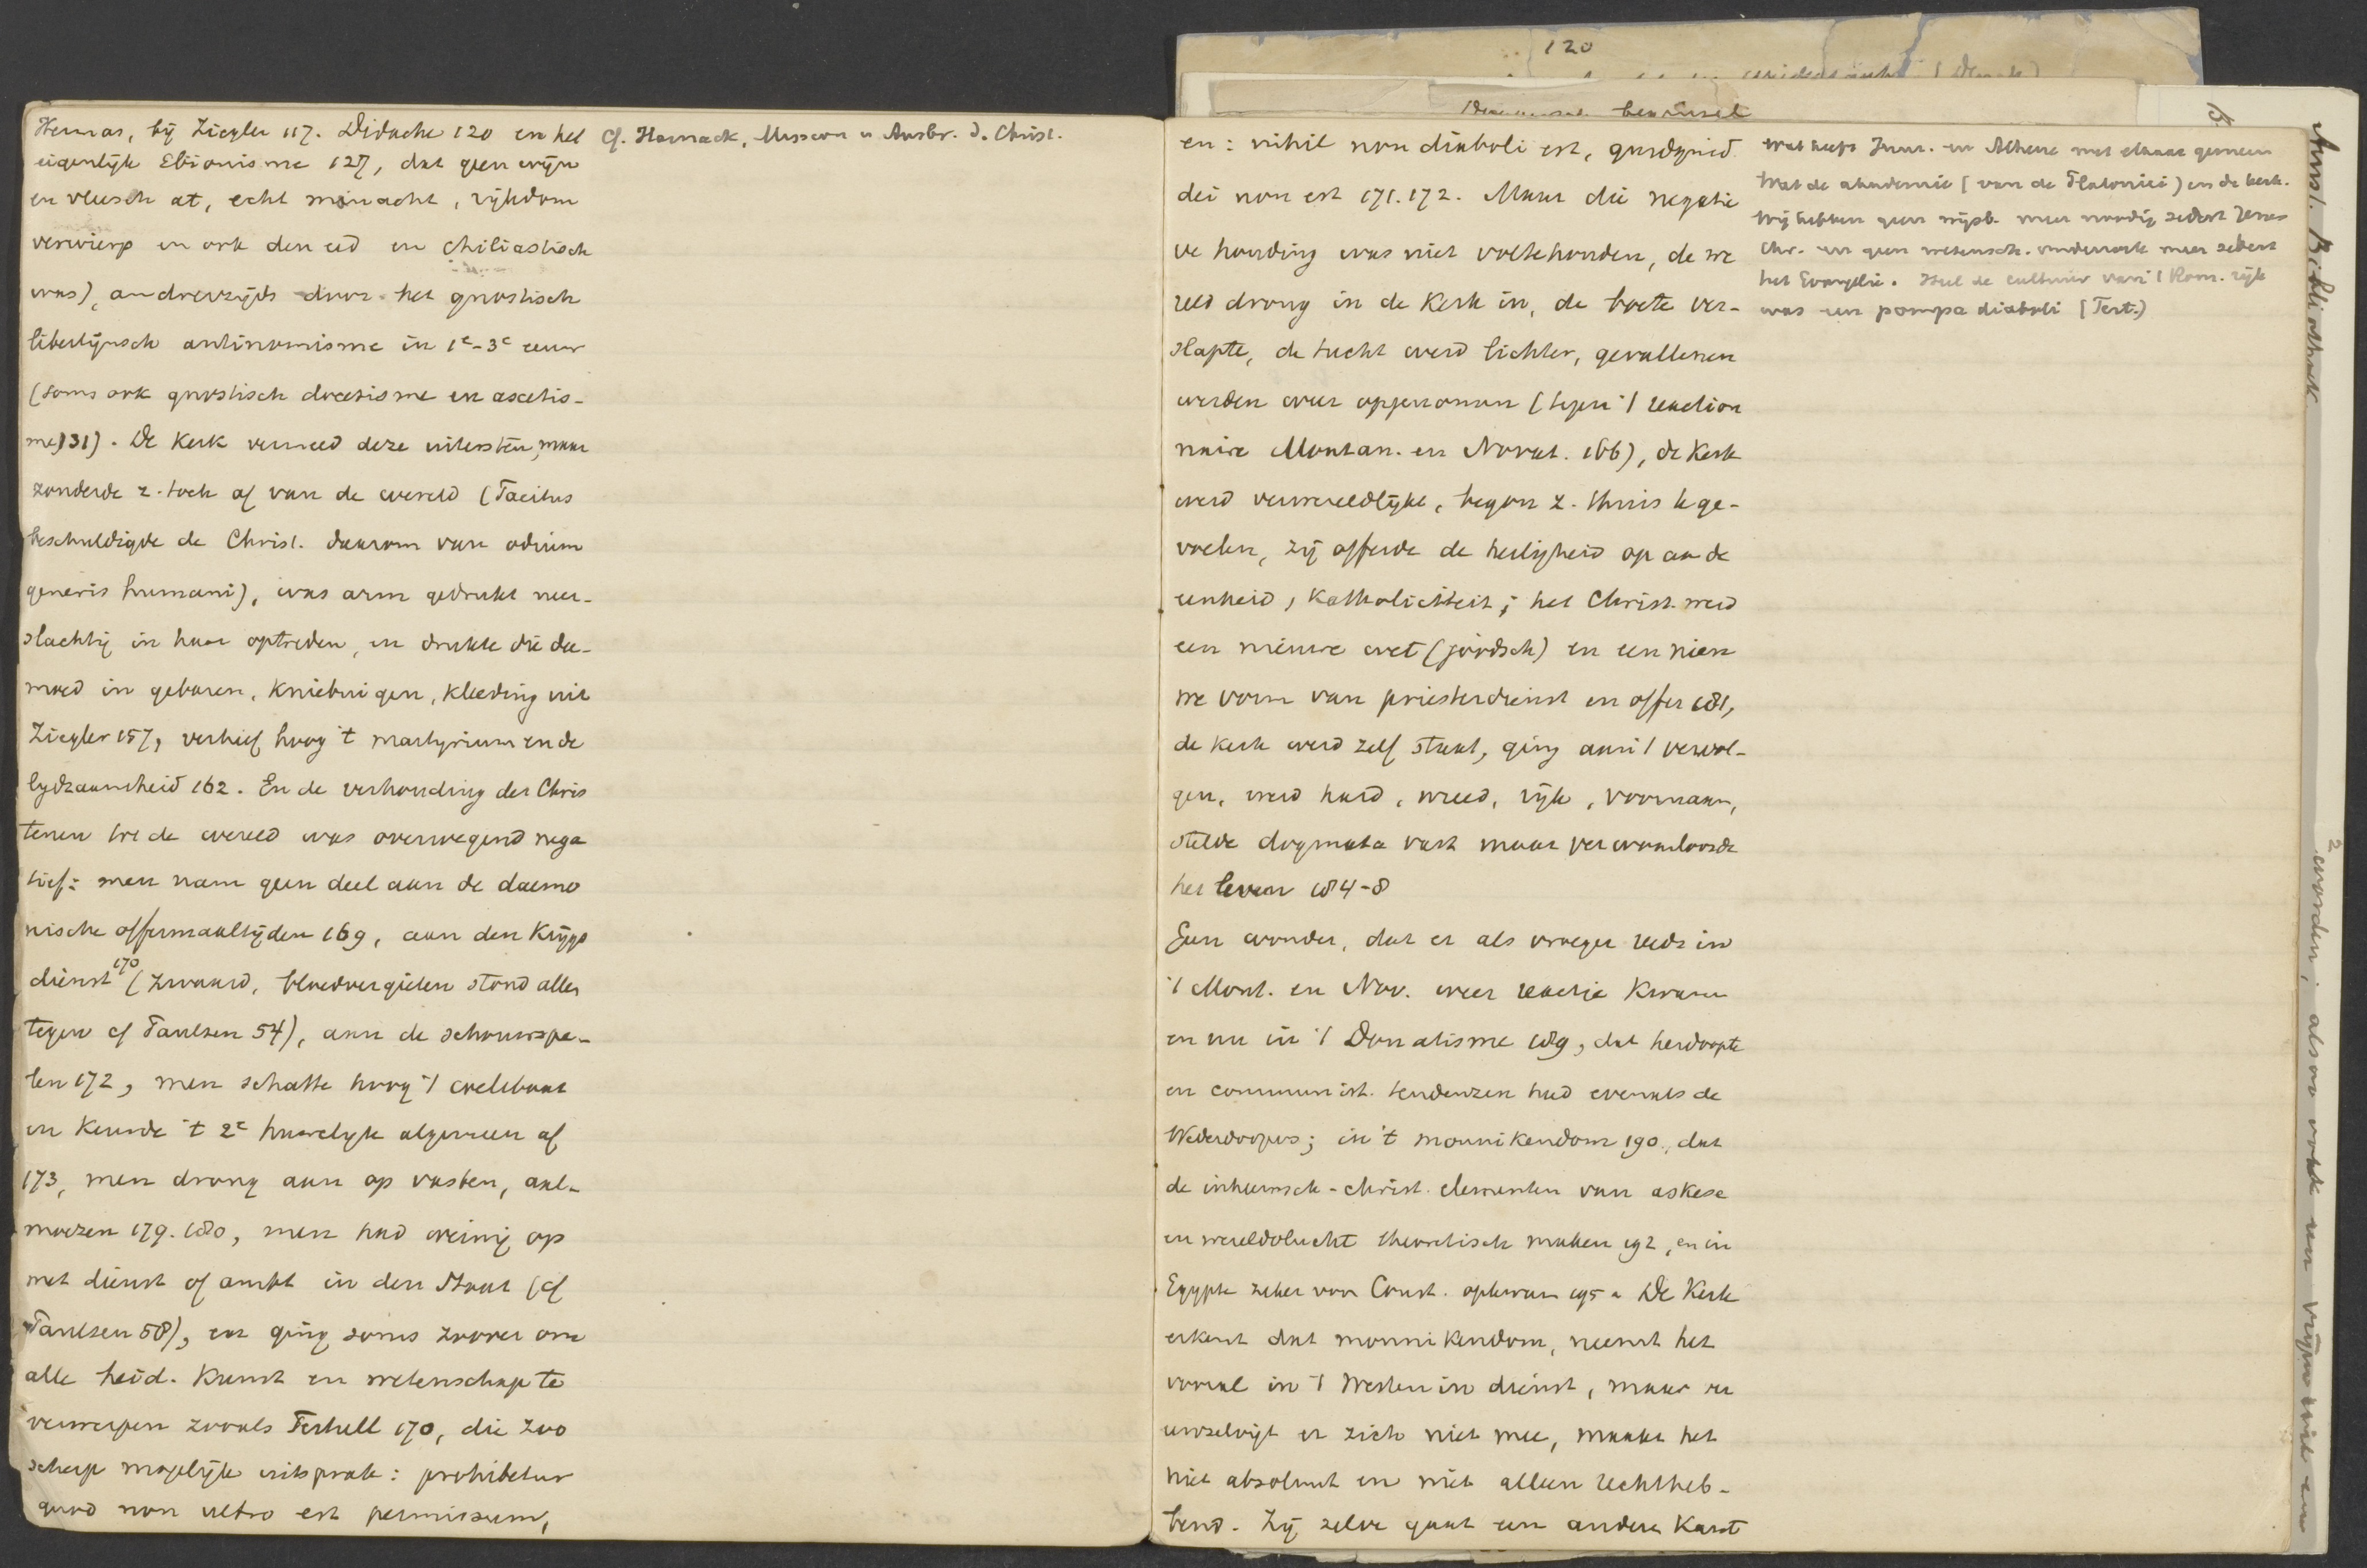 Hermas, bij Ziegler 117. Didache 120 en het
eigenlijk Ebionisme 127, dat geen wijn
en vleesch at, echt minacht, rijkdom
verwierp en ook den eed en chiliastisch
was), anderzijds door het gnostisch
libertijnsch antinomisme in 1e-3e eeuw
(soms ook gnostisch docetisme en ascetis-
me 131). De Kerk vermeed deze uitersten, maar
zonderde z. toch af van de wereld (Tacitus
beschuldigde de Christ. daarom van odium
generis humani), was arm gedrukt neer-
slachtig in haar optreden, en drukte die dee-
moed in gebaren, Kniebuigen, Kleeding uit
Ziegler 157, verhief hoog 't martyrium en de
lydzaamheid 162. En de verhouding der Chris
tenen tot de wereld was overwegend nega
tief: men nam geen deel aan de daemo
nische offermaaltijden 169, aan den Krijgs
dienst 170 (zwaard, bloedvergieten stond alles
tegen cf Paulsen 54), aan de schouwspe-
len 172, men schatte hoog 't coelibaat
en Keurde 't 2e huwelyk algemeen af
173, men drong aan op vasten, aal-
moezen 179. 180, men had weinig op
met dienst of ambt in den Staat (cf
Paulsen 58), en ging soms zoover om
alle heid. Kunst en wetenschap te
verwerpen zooals Tertull 170, die zoo
scherp mogelijk uitsprak: prohibetur
quod non ultro est permissum,
Cf. Harnack, Mission u Ausbr. d. Christ.
120
en: nihil non diaboli est, quidquid
dei non est 171.172. Maar die negatie
ve houding was niet voltehouden, de we
reld drong in de Kerk in, de boete ver-
slapte, de tucht werd lichter, gevallenen
werden weer opgenomen (tegen 't reaction
naire Montan. en Novat. 166), de Kerk
werd verwereldlijkt, begon z. thuis te ge-
voelen, zij offerde de heiligheid op aan de
eenheid, Katholiciteit; het Christ. werd
een nieuwe wet (joodsch) en een nieu
we vorm van priesterdienst en offer 181,
de Kerk werd zelf staat, ging aan 't vervol-
gen, werd hard, wreed, rijk, voornaam,
stelde dogmata vast maar verwaarloosde
het leven 184-8
Geen wonder, dat er als vroeger reeds in
't Mont. en Nov. weer reactie Kwam
en nu in 't Donatisme 189, dat herdoopte
en communist. tendenzen had evenals de
Wederdoopers; in 't monnikendom 190, dat
de inheemsch-christ. elementen van askese
en wereldvlucht theoretisch maken 192, en in
Egypte zeker voor Const. opkwam 195. De Kerk
erkent dat monnikendom, neemt het
vooral in 't Westen in dienst, maar ver
eenzelvigt er zich niet mee, maakt het
niet absoluut en niet alleen rechtheb-
bend. Zij zelve gaat een andere Kant
Wat heeft Jeruz. en Athene met elkaar gemeen
Wat de akademie (van de Platonici) en de kerk.
Wij hebben geen wijsb. meer noodig sedert Jezus
Chr. en geen wetensch. onderzoek meer sedert
het Evangelie. Heel de cultuur van 't Rom. rijk
was een pompa diaboli (Tert.)
worden; alsoo ook